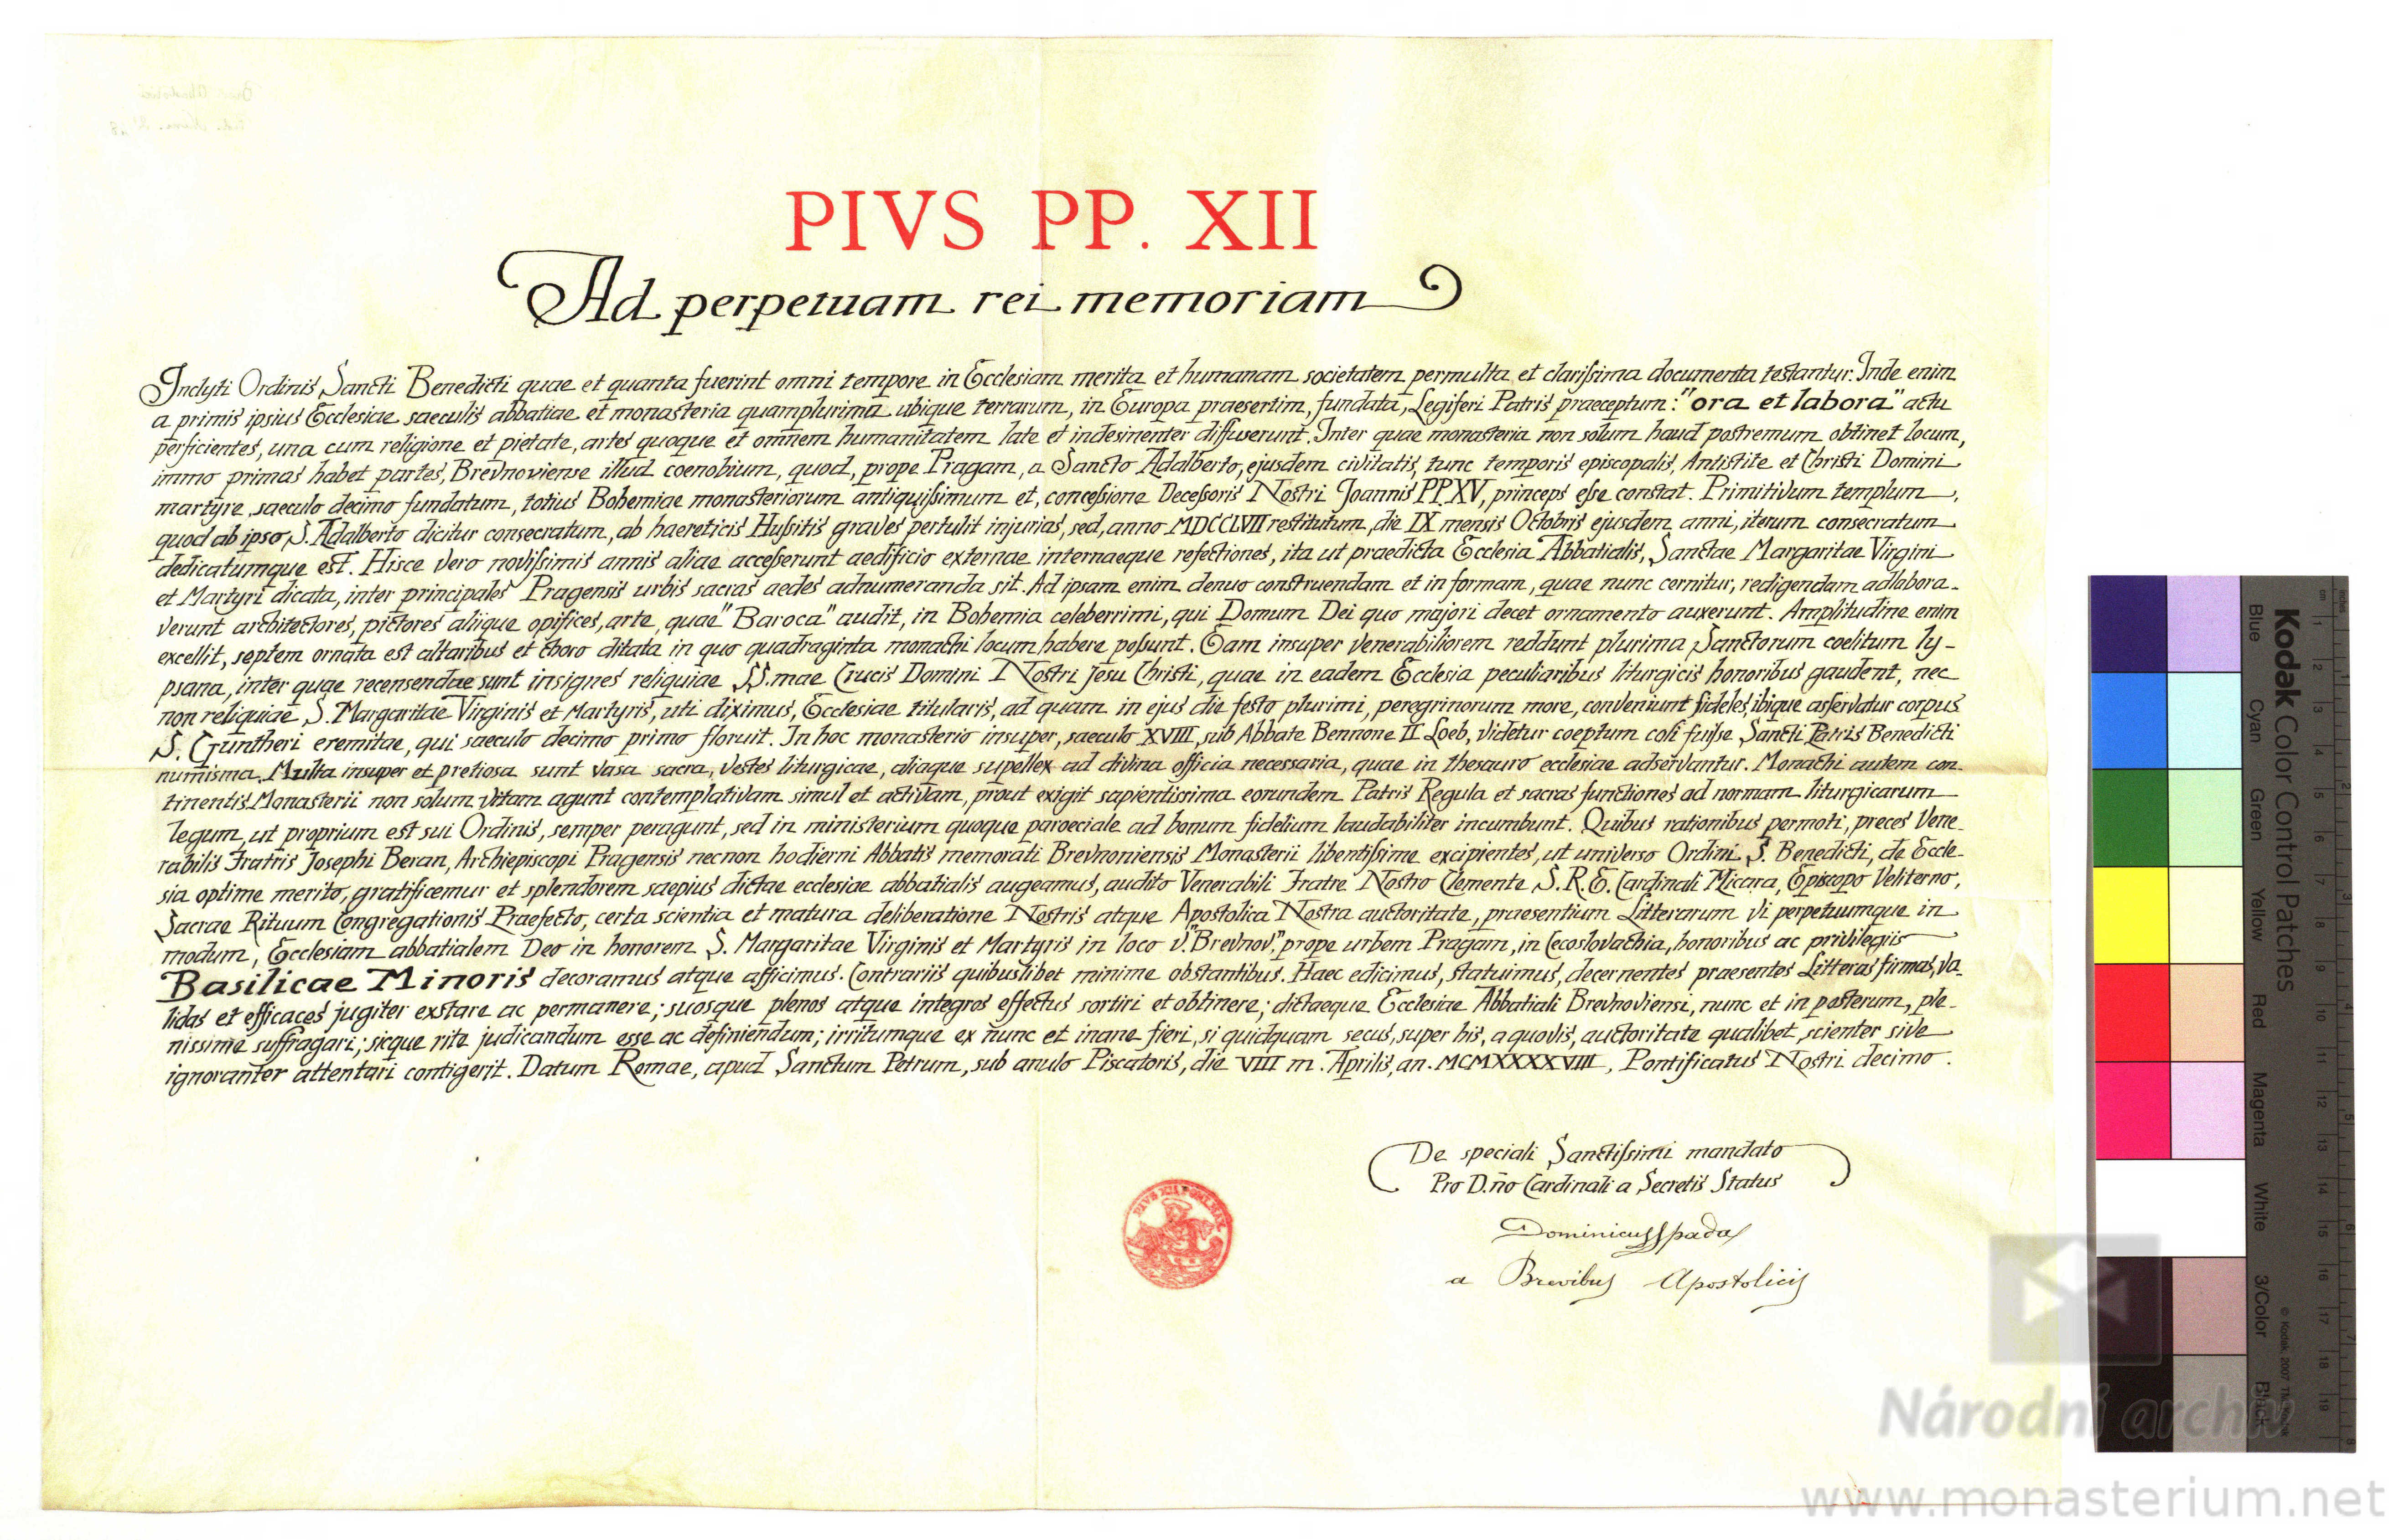 PIVS PP. XII
Ad perpetuam rei memoriam
Inclyti Ordinis Sancti Benedicti quae et quanta fuerint omni tempore in Ecclesiam merita et humanam societatem permulta et clarissima documenta testantur. Inde enim
a primis ipsius Ecclesiae saeculis abbatiae et monasteria quamplurima ubique terrarum, in Europa praesertim, fundata, Legiferi Patris praeceptum: "ora et labora" actu
perficientes, una cum religione et pietate, artes quoque et omnem humanitatem late et indesinenter diffuserunt. Inter quae monasteria non solum haud postremum obtinet locum,
immo primas habet partes, Brevnoviense illud coenobium, quod, prope Pragam, a Sancto Adalberto, ejusdem civitatis, tunc temporis episcopalis, Antistite et Christi Domini
martyre, saeculo decimo fundatum, totius Bohemiae monasteriorum antiquissimum et, concessione Decessoris Nostri Joannis PP XV, princeps esse constat. Primitivum templum,
quod ab ipso S. Adalberto dicitur consecratum, ab haereticis Hussitis graves pertulit injurias, sed, anno MDCCLVII restitutum, die IX mensis Octobris ejusdem anni, iterum consecratum
dedicatumque est. Hisce vero novissimis annis aliae accesserunt aedificio externae internaeque refectiones, ita ut praedicta Ecclesia Abbatialis, Sanctae Margaritae Virgini
et Martyri dicata, inter principales Pragensis urbis sacras aedes adnumeranda sit. Ad ipsam enim denuo construendam et in formam, quae nunc cernitur, redigendam adlabora-
verunt architectores, pictores aliique opifices, arte, quae "Baroca" audit, in Bohemia celeberrimi, qui Domum Dei quo majori decet ornamento auxerunt. Amplitudine enim
excellit, septem ornata est altaribus et choro ditata in quo quadraginta monachi locum habere possunt. Eam insuper venerabiliorem reddunt plurima Sanctorum coelitum ly-
psana, inter quae recensendae sunt insignes reliquiae SS.mae Crucis Domini Nostri Jesu Christi, quae in eadem Ecclesia peculiaribus liturgicis honoribus gaudent, nec
non reliquiae S. Margaritae Virginis et Martyris, uti diximus, Ecclesiae titularis, ad quam in ejus die festo plurimi, peregrinorum more, conveniunt fideles, ibique asservatur corpus
S. Guntheri eremitae, qui saeculo decimo primo floruit. In hoc monasterio insuper, saeculo XVIII, sub Abbate Bennone II Loeb, videtur coeptum coli fuisse Sancti Patris Benedicti
numisma. Multa insuper et pretiosa sunt vasa sacra, vestes liturgicae, aliaque supellex ad divina officia necessaria, quae in thesauro ecclesiae adservantur. Monachi autem con-
tinentis Monasterii non solum vitam agunt contemplativam simul et activam, prout exigit sapientissima eorundem Patris Regula et sacras functiones ad normam liturgicarum
legum, ut proprium est sui Ordinis, semper peragunt, sed in ministerium quoque paroeciale ad bonum fidelium laudabiliter incumbunt. Quibus rationibus permoti, preces Vene-
rabilis Fratris Josephi Beran, Archiepiscopi Pragensis necnon hodierni Abbatis memorati Brevnoniensis Monasterii libentissime excipientes, ut universo Ordini S. Benedicti, de Eccle-
sia optime merito, gratificemur et splendorem saepius dictae ecclesiae abbatialis augeamus, audito Venerabili Fratre Nostro Clemente S.R.E. Cardinali Micara, Episcopo Veliterno,
Sacrae Rituum Congregationis Praefecto, certa scientia et matura deliberatione Nostris atque Apostolica Nostra auctoritate, praesentium Litterarum vi perpetuumque in
modum, Ecclesiam abbatialem Deo in honorem S. Margaritae Virginis et Martyris in loco v. "Brevnov", prope urbem Pragam, in Cecoslovachia, honoribus ac privilegiis
Basilicae Minoris decoramus atque afficimus. Contrariis quibuslibet minime obstantibus. Haec edicimus, statuimus, decernentes praesentes Litteras firmas, va-
lidas et efficaces jugiter exstare ac permanere; suosque plenos atque integros effectus sortiri et obtinere; dictaeque Ecclesiae Abbatiali Brevnoviensi, nunc et in posterum, ple-
nissime suffragari; sicque rite judicandum esse ac definiendum; irritumque ex nunc et inane fieri, si quidquam secus, super his, a quovis, auctoritate qualibet, scienter sive
ignoranter attentari contigerit. Datum Romae, apud Sanctum Petrum, sub anulo Piscatoris, die VIII m. Aprilis, an. MCMXXXXVIII, Pontificatus Nostri decimo.
De speciali Sanctissimi mandato
Pro D.ño Cardinali a Secretis Status
Dominicus Spada
a Brevibus Apostolicis
PIVS XII PONT. MAX
Kodak Color Control Patches
Blue Cyan Green Yellow Red Magenta White 3/Color Black
© Kodak, 2007
cm 1 2 3 4 5 6 7 8 9 10 11 12 13 14 15 16 17 18 19
inches 1 2 3 4 5 6 7 8
Národní archiv
www.monasterium.net